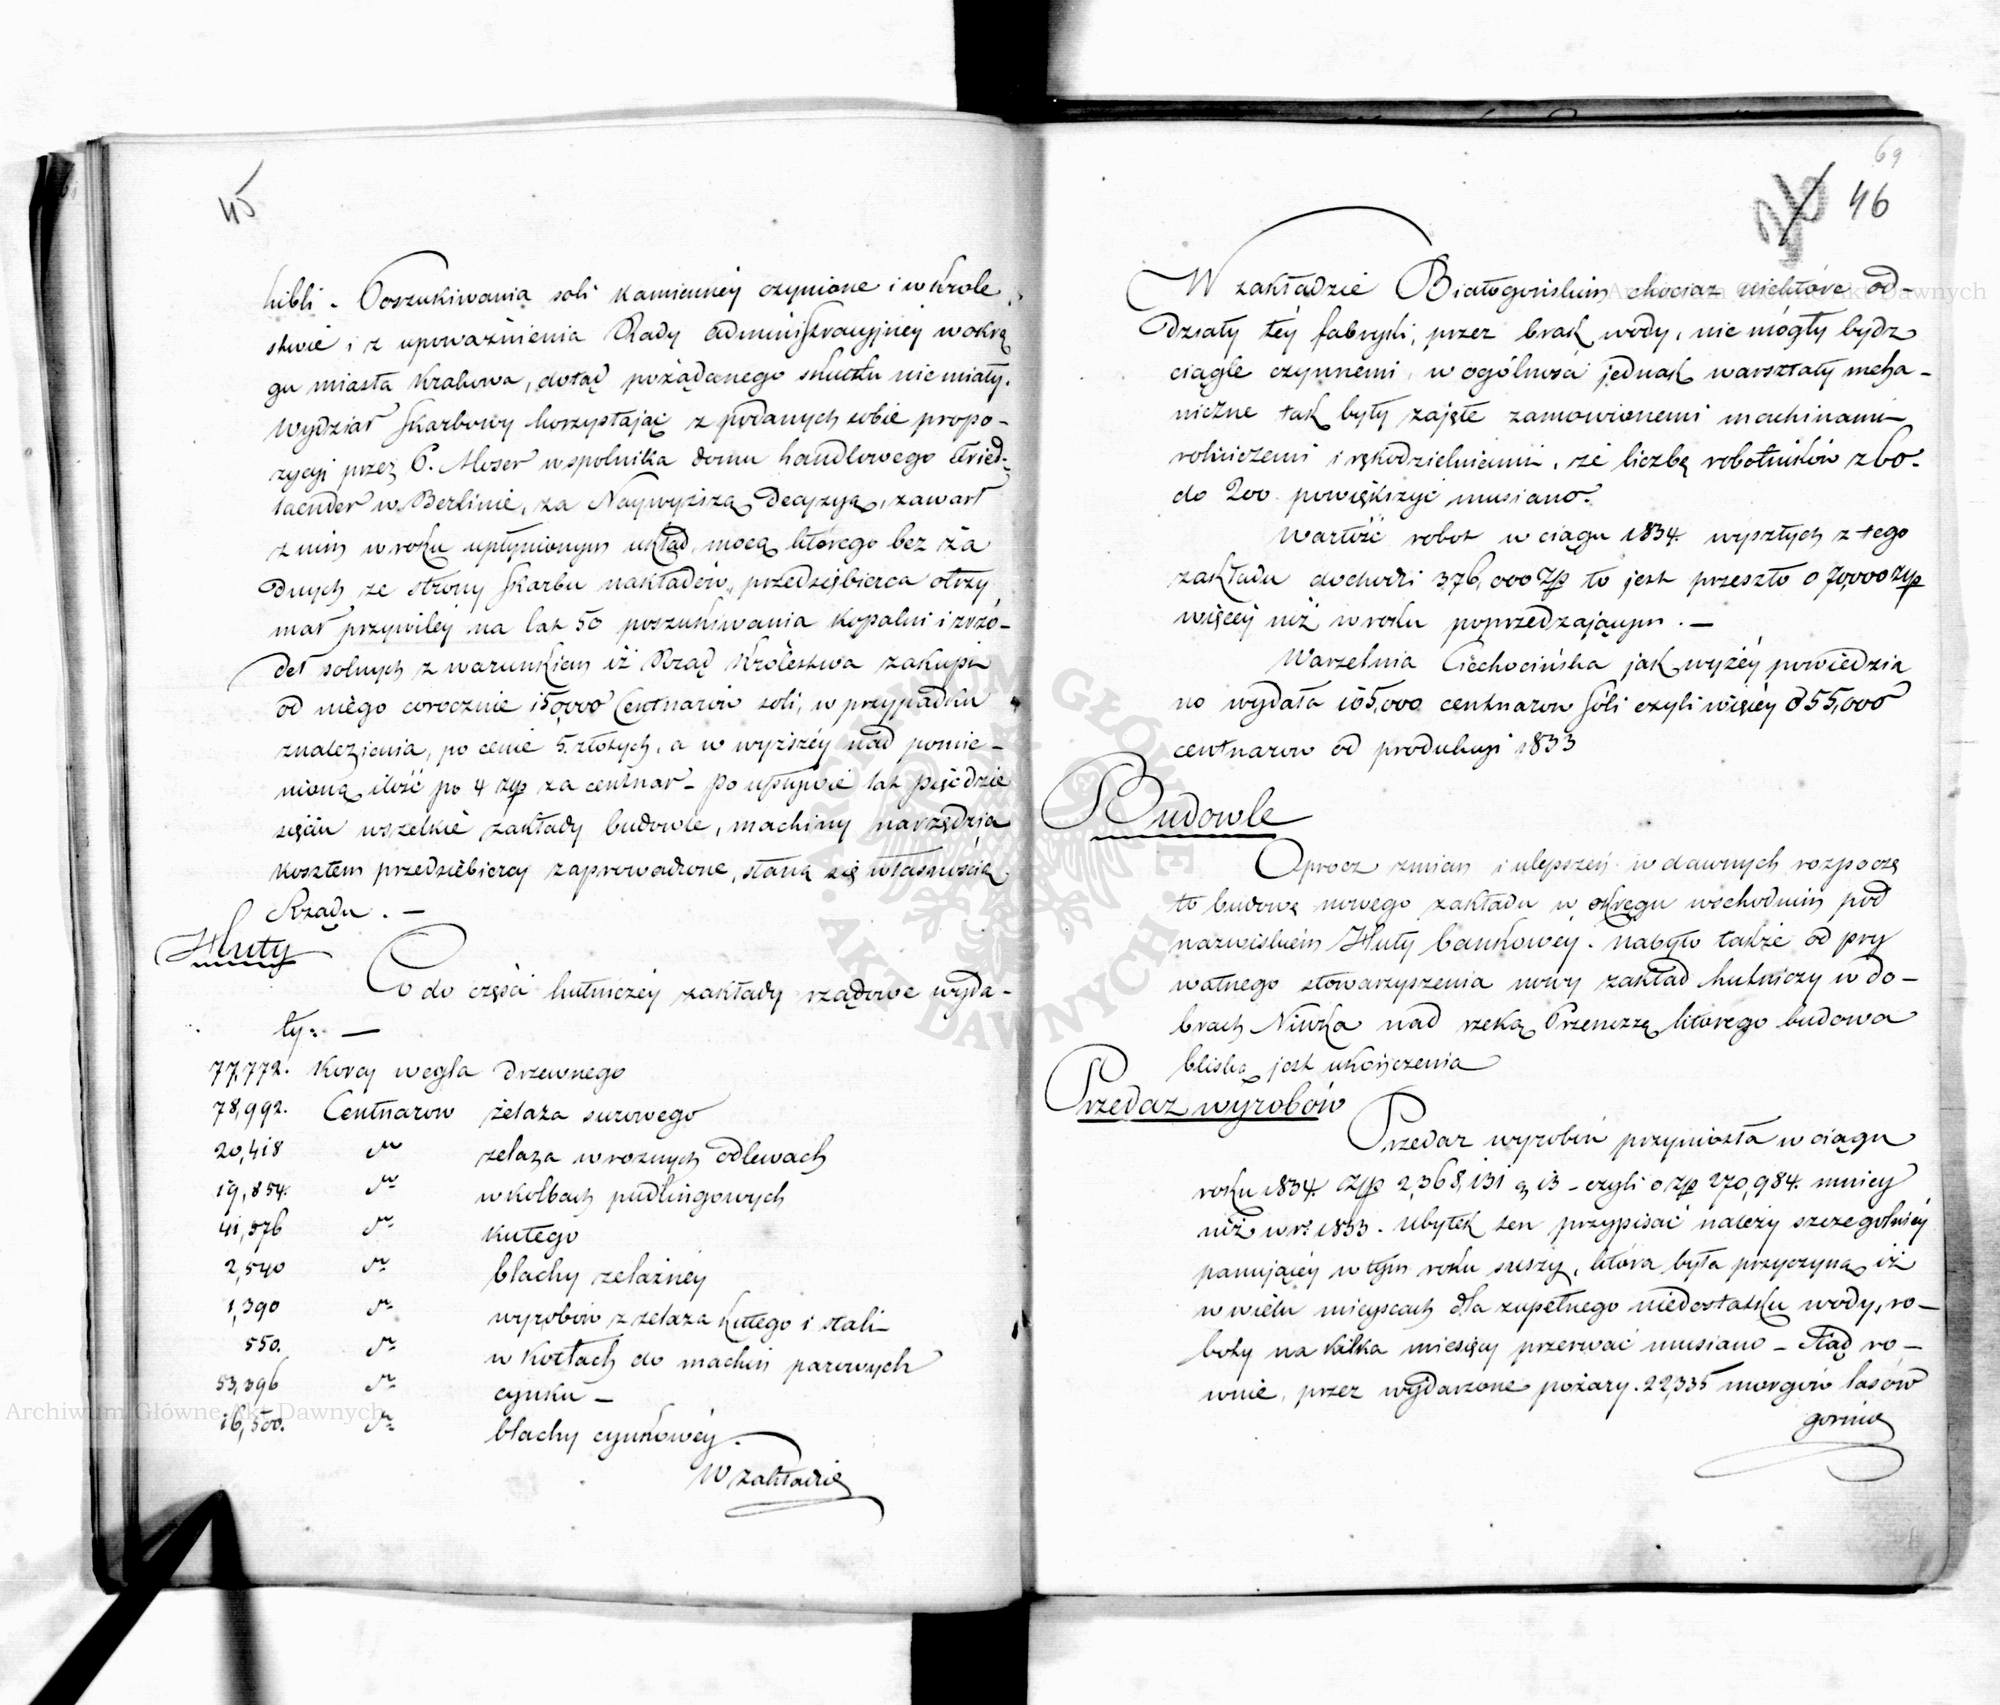 45
hibli - Poszukiwania soli kamienney czynione i w Krole
stwie i z upoważnienia Rady Administracyjney w okrę
gu miasta Krakowa, dotąd pożądanego skutku nie miały.
Wydział Skarbowy korzystając z podanych sobie propo-
zycji przez P. Moser wspolnika domu handlowego Fried-
laender w Berlinie, za Naywyższą Decyzyą, zawarł
z nim w roku upłynionym układ, mocą którego bez ża
dnych ze strony Skarbu nakładów, przedsiębierca otrzy
mał przywiley na lat 50 poszukiwania kopalni i zrzó-
deł solnych z warunkiem iż Rząd Królestwa zakupi
od niego corocznie 150,000 Centnarow soli, w przypadku
znalezienia, po cenie 5. złotych, a w wyższey nad pomie-
nioną ilość po 4 złp za centnar - po upływie lat pięćdzie
sięciu wszelkie zakłady budowle, machiny narzędzia
kosztem przedsiebiercy zaprowadzone, staną się własnością
Rządu. -
Huty
Co do części hutniczéy zakłady rządowe wyda-
ły: -
77,772. Korcy węgla Drzewnego
78,992. Centnarow żelaza surowego
20,418 do żelaza w roznych odlewach
19,854. do w kolbach pudlingowych
41,576 do kutego
2,540 do blachy żelaznéy
1,390 do wyrobów z żelaza kutego i stali
550. do w Kotłach do machin parowych
53,396 do cynku -
16,500. do blachy cynkowéy.
W zakładzie
69
46
W zakładzie Białogońskim chociaz niektóre od-
działy téy fabryki, przez brak wody, nie mogły bydz
ciągle czynnemi, w ogólności jednak warsztaty mecha-
niczne tak były zajęte zamowionemi machinami
rolniczemi i rękodzielniami, że liczbę robotników z 60.
do 200. powiększyć musiano.
Wartość robot w ciągu 1834 wyszłych z tego
zakładu dochodzi 376,000 Złp to jest przeszło o 70,000 złp
więcéy niż w roku poprzedzającym. -
Warzelnia Ciechocińska jak wyżéy powiedzia
no wydała 105,000 centnarow Soli czyli więcéy o 55,000
centnarow od produkcyi 1833
Budowle
Oprocz zmian i ulepszeń w dawnych rozpoczę
to budowę nowego zakładu w okręgu wschodnim pod
nazwiskiem Huty bankowéy. nabyto także od pry
watnego stowarzyszenia nowy zakład hutniczy w do-
brach Niwka nad rzeką Przemszą którego budowa
bliską jest ukończenia
Przedaz wyrobów
Przedaz wyrobów przyniosła w ciągu
roku 1834. Złp 2,368,131 g 13 - czyli o złp 270,984. mniéy
niż w r. 1833. Ubytek ten przypisać należy szczegolniéy
panującéy w tym roku suszy, która była przyczyną iż
w wielu mieyscach dla zupełnego niedostatku wody, ro-
boty na kilka miesięcy przerwać musiano - Nad ro-
wnie, przez wydarzone pożary. 22,335 morgów lasów